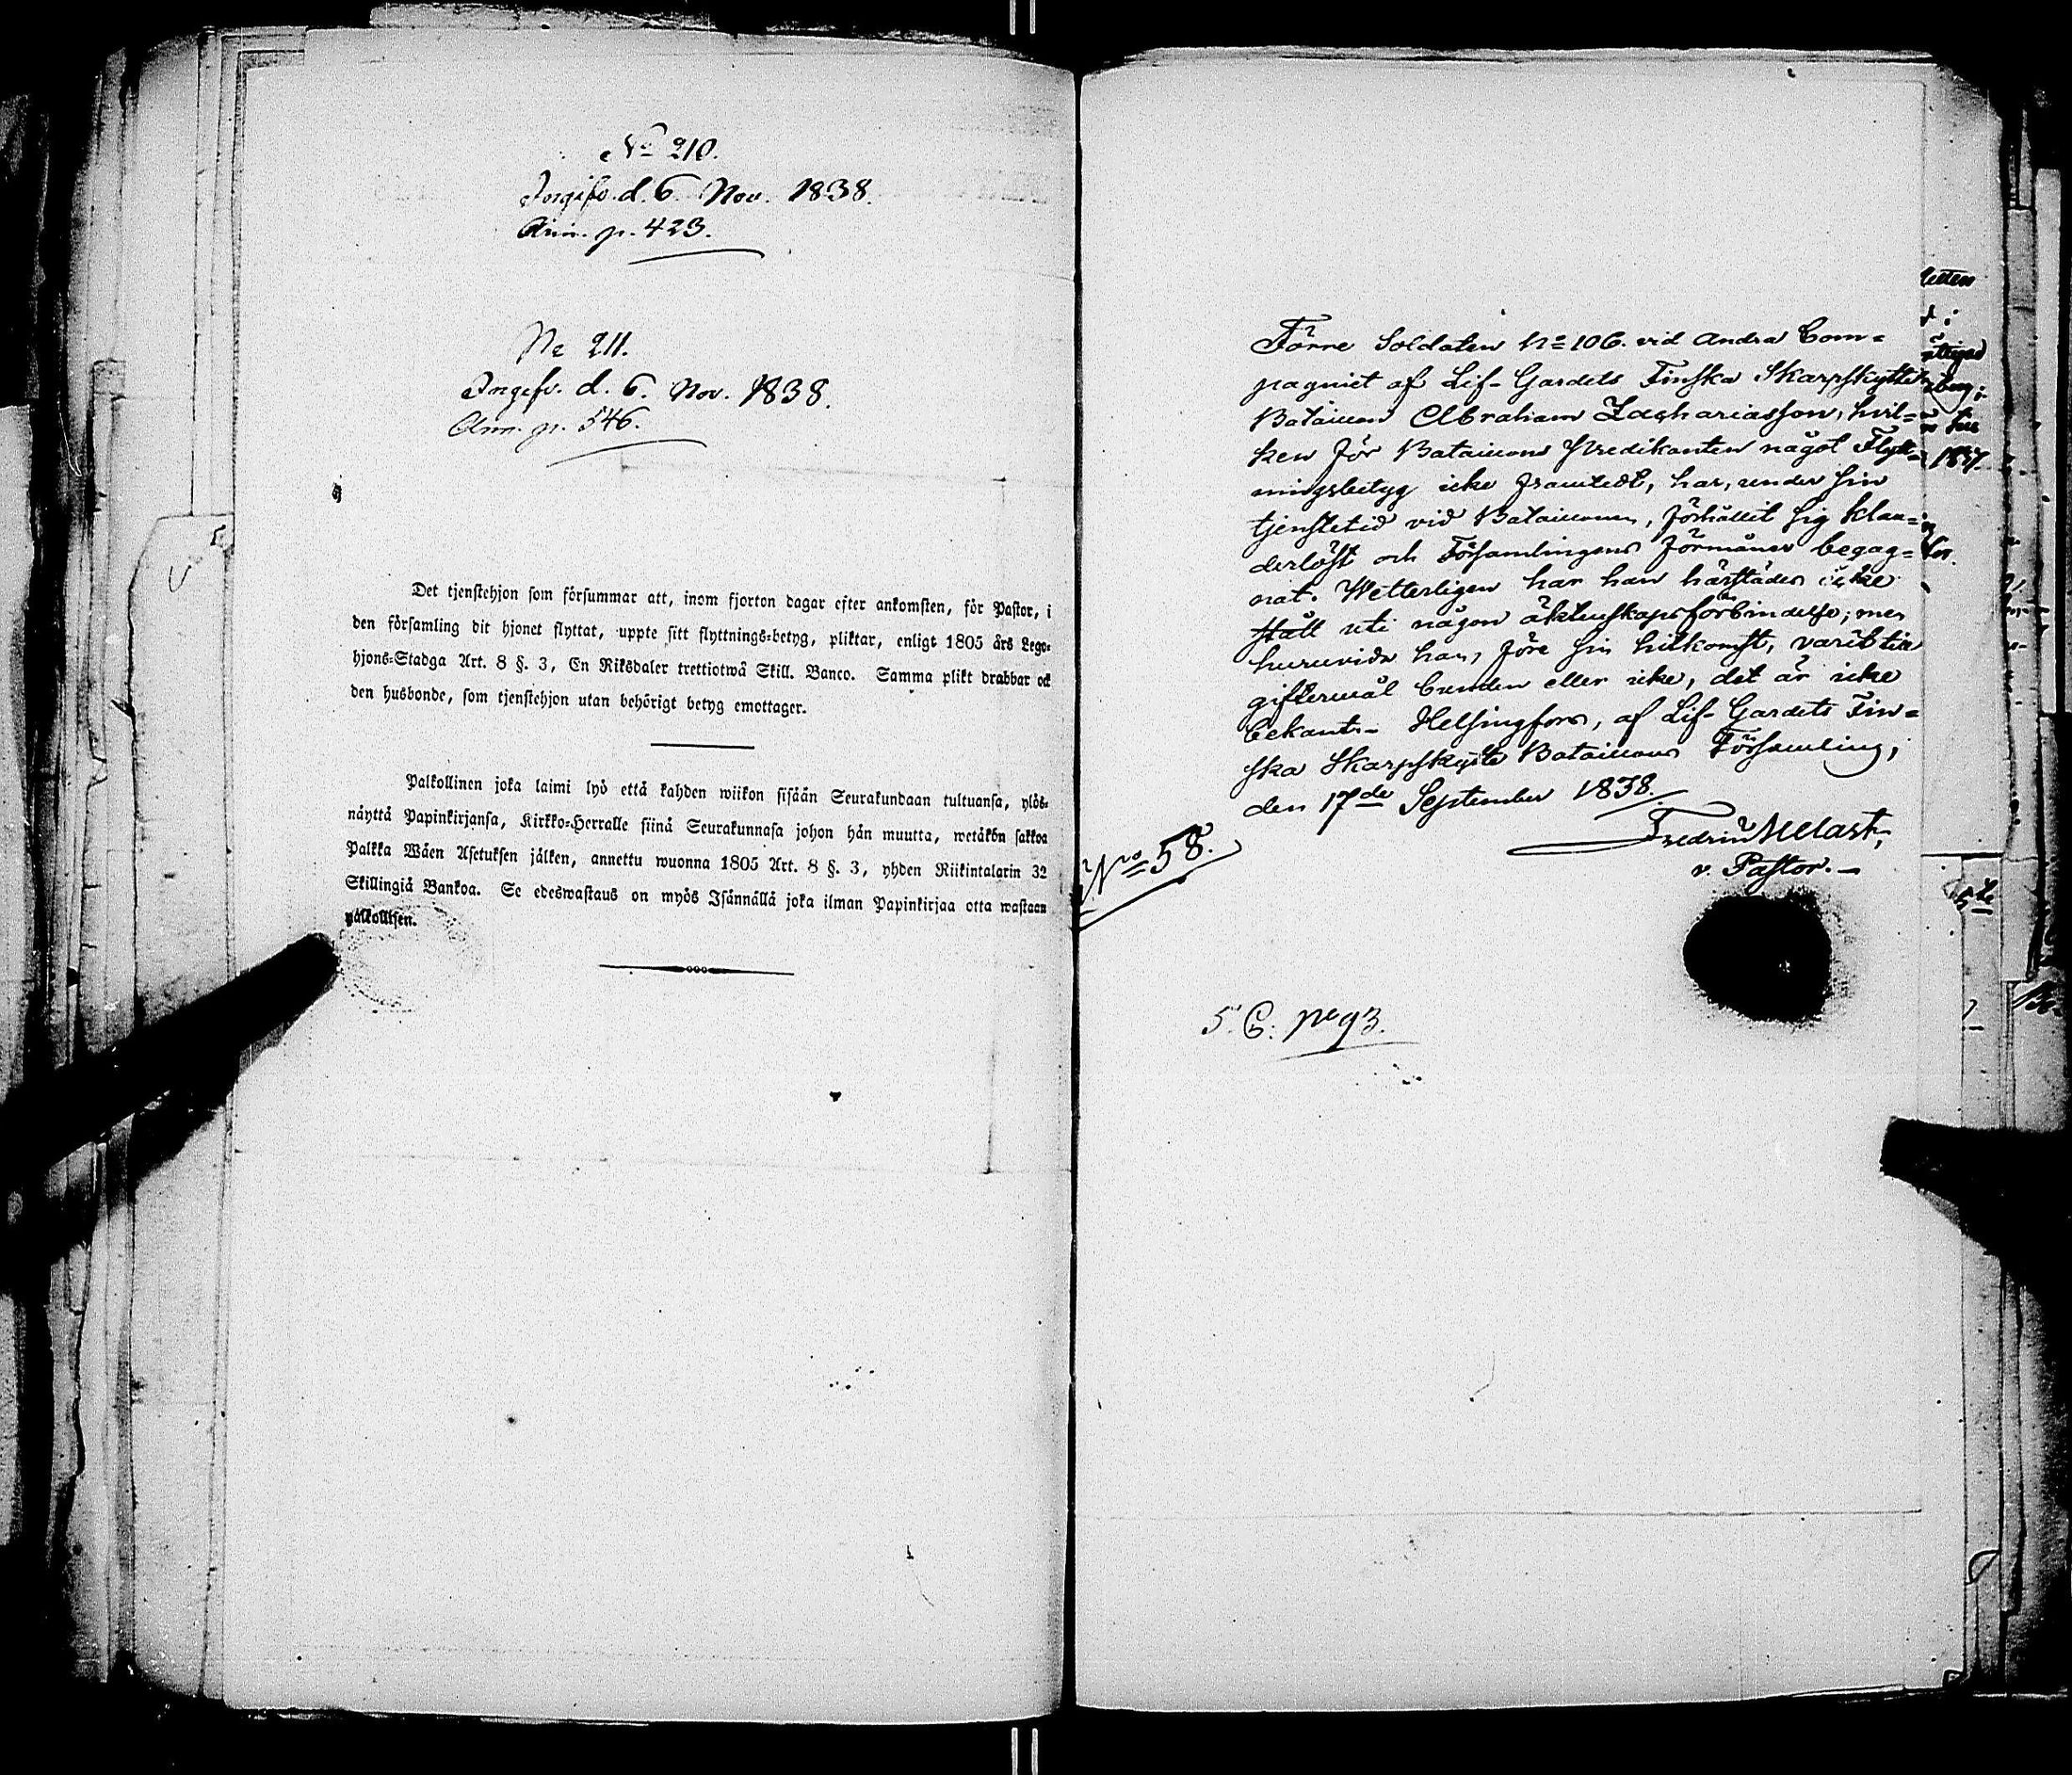 No 210.
Ingifv. d. 6 Nov. 1838.
Ann. p. 423.
No 211.
Ingifv. d. 6. Nov. 1838.
Ann. p. 546.
Det tjenstehjon som försummar att, inom fjorton dagar efter ankomsten, för Pastor, i
den församling dit hjonet flyttat, uppte sitt flyttnings-betyg, pliktar, enligt 1805 års Lego-
hjons-Stadga Art. 8 §. 3, En Riksdaler trettiotwå Skill. Banco. Samma plikt drabbar ock
den husbonde, som tjenstehjon utan behörigt betyg emottager.
Palkollinen joka laimi lyö että kahden wiikon sisään Seurakundaan tultuansa, ylös-
näyttä Papinkirjansa, Kirkko-Herralle siinä Seurakunnasa johon hän muutta, wetäkön sakkoa
Palkka Wäen Asetuksen jälken, annettu wuonna 1805 Art. 8 §. 3, yhden Riikintalarin 32
Skillingiä Bankoa. Se edeswastaus on myös Isännällä joka ilman Papinkirjaa otta wastaan
palkollisen.
Förre Soldaten No 106. vid Andra Com-
pagniet af Lif-Gardets Finska Skarpskytte
Bataillon Abraham Zachariasson, hvil-
ken för Bataillons Predikanten något Flytt-
ningsbetyg icke framtedt, har, under sin
tjenstetid vid Bataillonen, förhållit sig klan-
derlöst och Församlingens förmåner begag-
nat. Wetterligen har han härstädes icke
ställ uti någon äktenskapsförbindelse; men
huruvida han, före sin hitkomst, varit till
giftermål bunden eller icke, det är icke
bekant. Helsingfors, af Lif-Gardets Fin-
ska Skarpskytte Bataillons Församling,
den 17de September 1838.
Fredric Melart,
v. Pastor.
No 58.
5. C: pg 93.
1837.